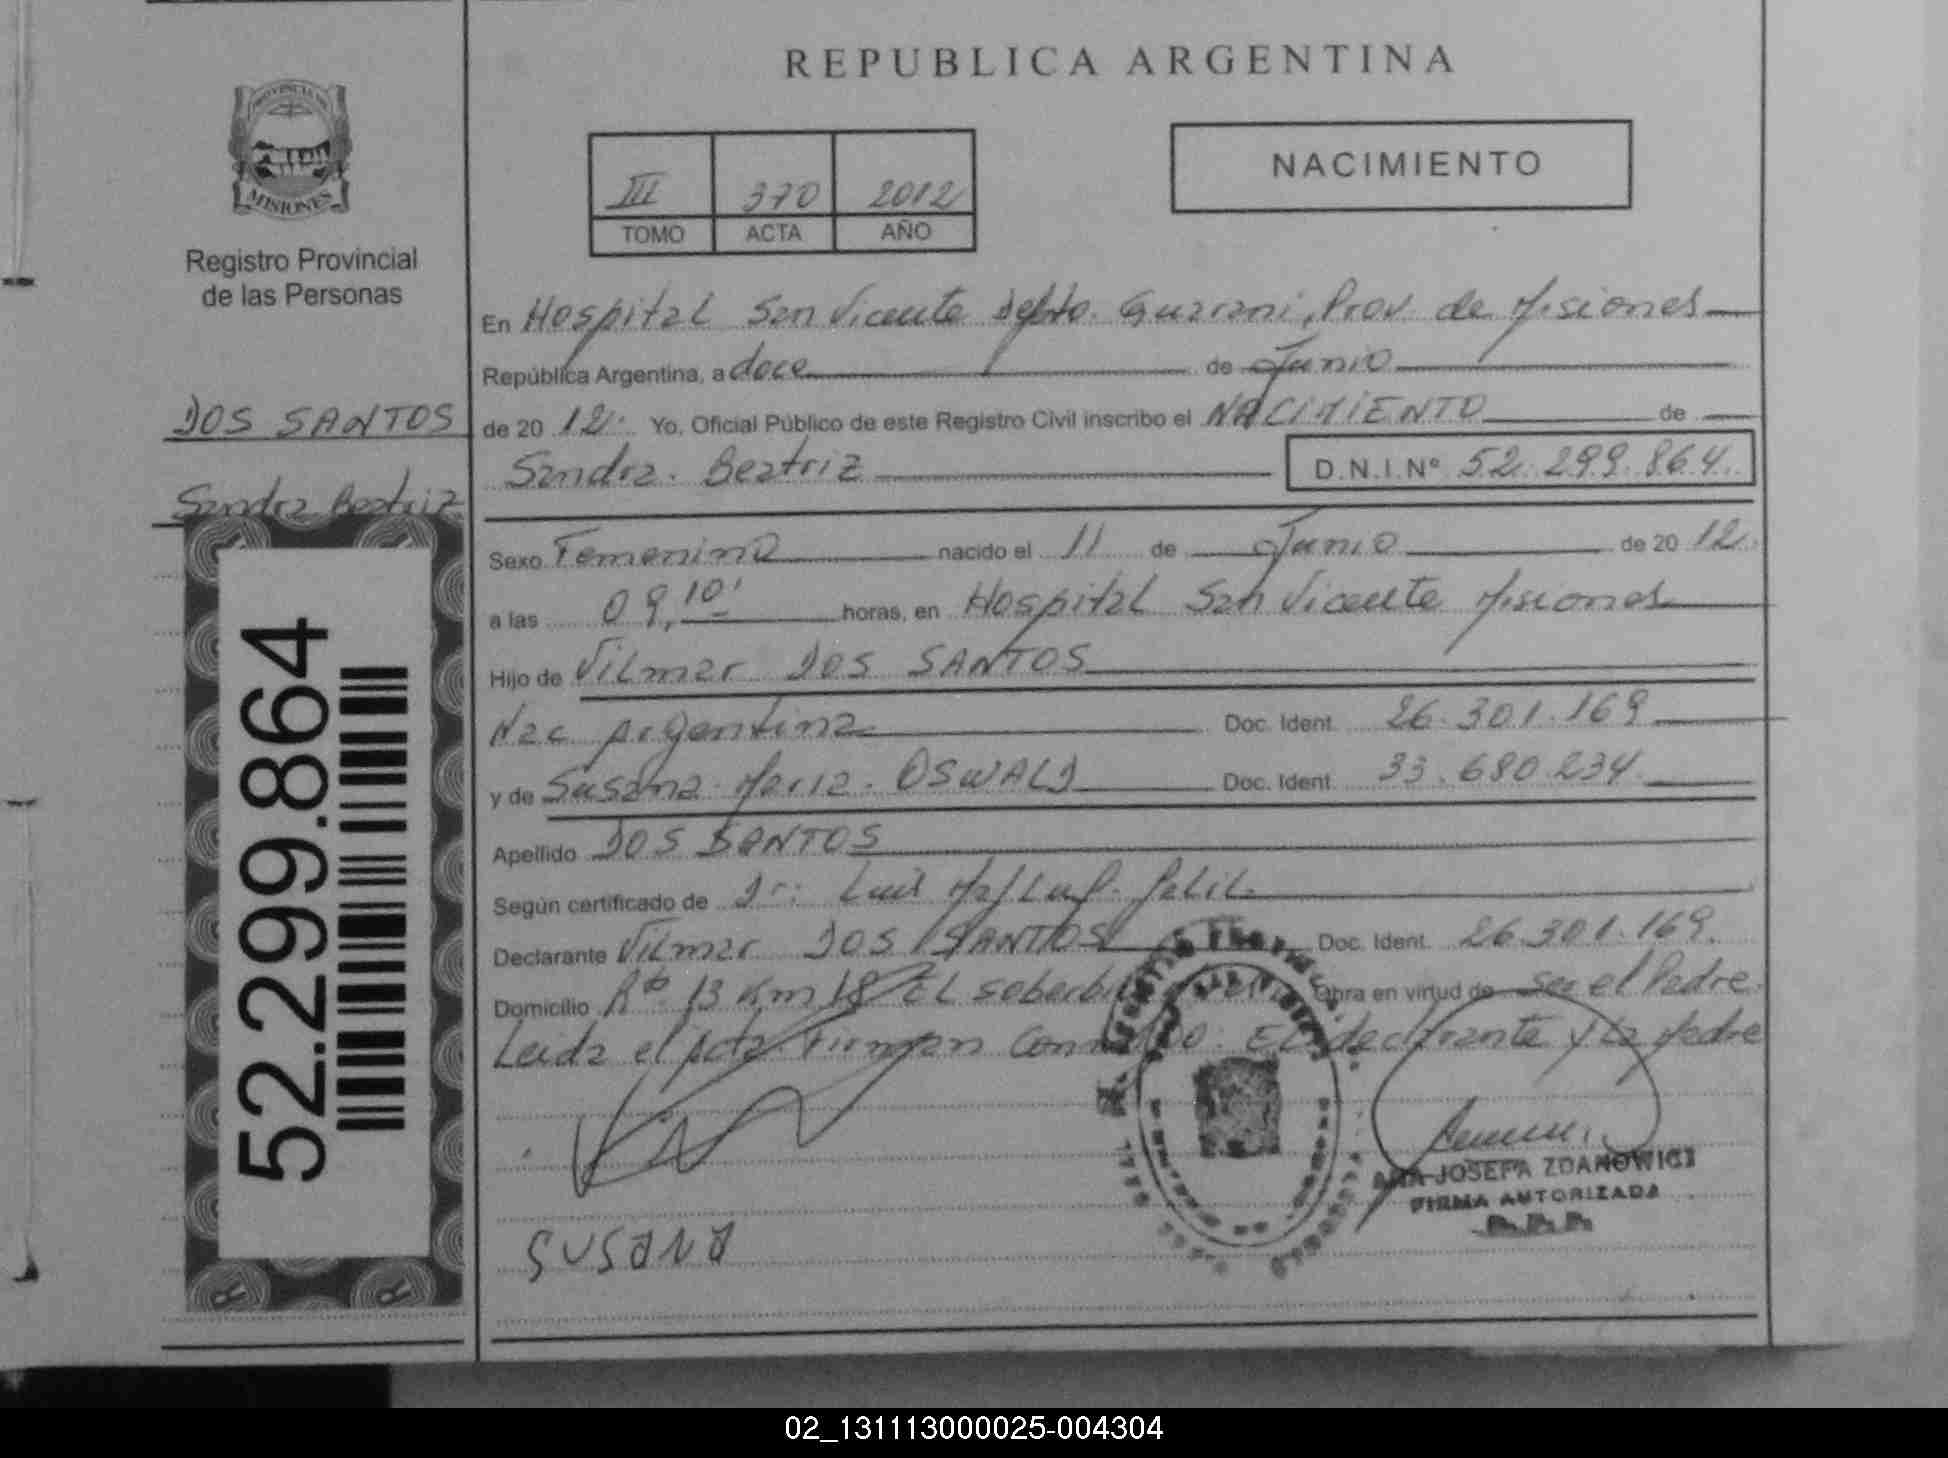 REPUBLICA ARGENTINA
PROVINCIA DE
MISIONES
Registro Provincial
de las Personas
III 370 2012
TOMO ACTA AÑO
NACIMIENTO
DOS SANTOS
Sandra Beatriz
52.299.864
En Hospital San Vicente Depto. Guarani, Prov. de Misiones
República Argentina, a doce de Junio
de 20 12. Yo, Oficial Público de este Registro Civil inscribo el NACIMIENTO de
Sandra. Beatriz D.N.I.Nº 52.299.864.
Sexo Femenino nacido el 11 de Junio de 20 12.
a las 09,10' horas, en Hospital San Vicente Misiones
Hijo de Vilmar DOS SANTOS
Nac Argentina Doc. Ident. 26.301.169
y de Susana Maria. OSWALD Doc. Ident. 33.680.234
Apellido DOS SANTOS
Según certificado de Dr: Luis
Declarante Vilmar DOS SANTOS Doc. Ident. 26.301.169.
Domicilio Rta 13 Km 18 EL Soberbio Obra en virtud de ser el Padre.
Leida el Acta Firman El declarante y La Madre
SUSANA
ANA JOSEFA ZDANOWICZ
FIRMA AUTORIZADA
R.P.P.
R R
02_131113000025-004304